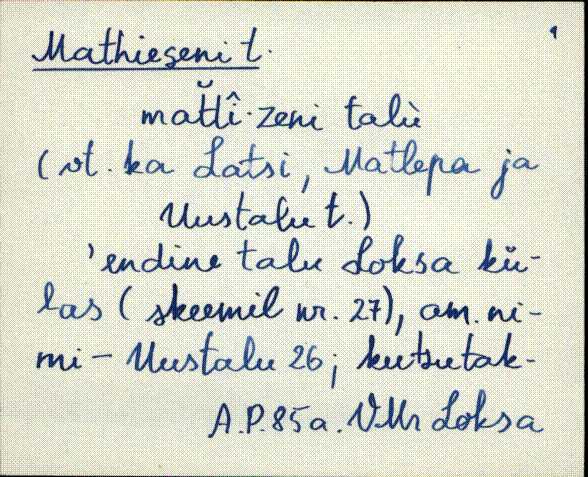 1
Mathieseni t.
mat̆t̆î·zeni talù
(vt. ka Latsi, Matlepa ja
Uustalu t.)
'endine talu Loksa kü-
las (skeemil nr. 27), am. ni-
mi - Uustalu 26; kutsutak-
A.P. 85a. VMr Loksa